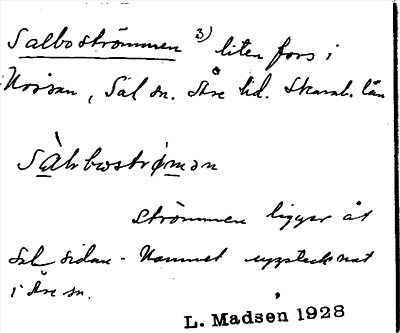 Salboströmmen 3) liten fors i
Nossan, Sal sn. Åse hd. Skarab. län
strömmen ligger åt
Sal sidan - Namnet upptecknat
i Åse sn.
L. Madsen 1928